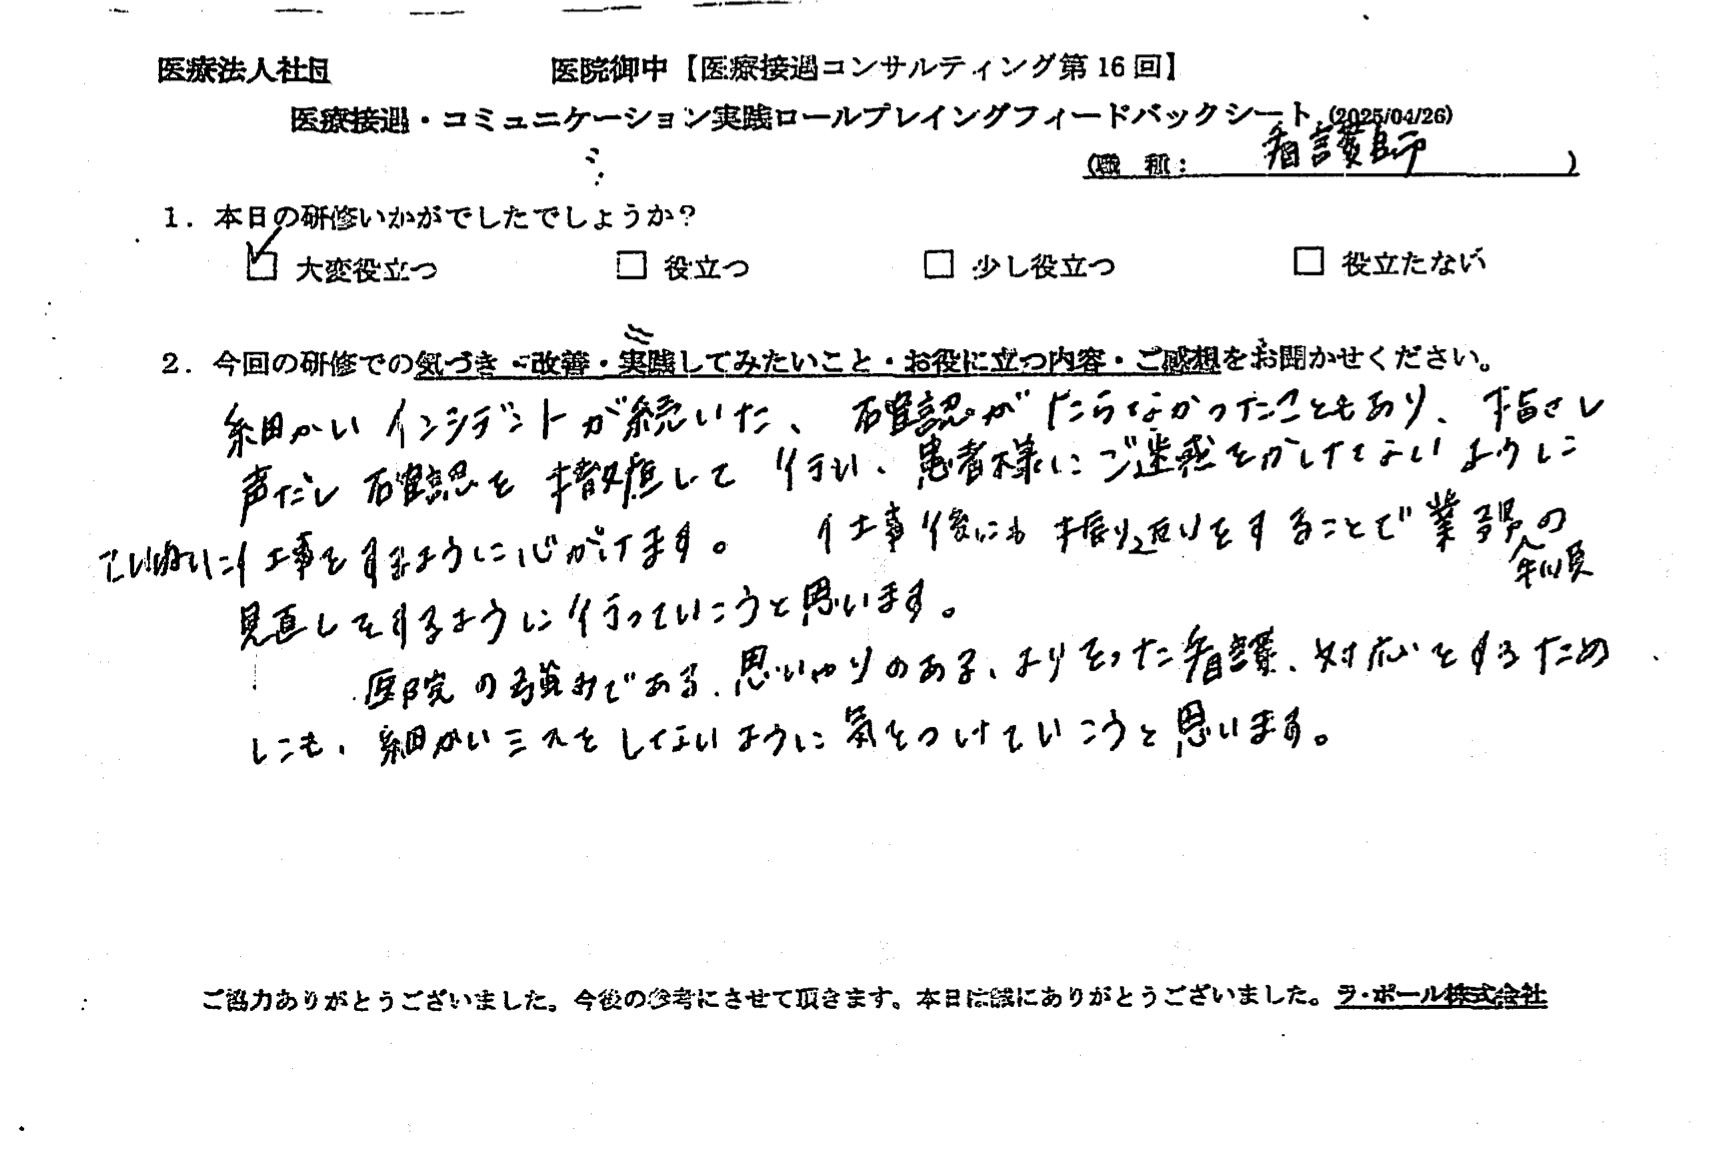 医療法人社団 医院御中【医療接遇コンサルティング第16回】
医療接遇・コミュニケーション実践ロールプレイングフィードバックシート (2025/04/26)
(職 種: 看護師 )
1. 本日の研修いかがでしたでしょうか?
☑ 大変役立つ □ 役立つ □ 少し役立つ □ 役立たない
2. 今回の研修での気づき・改善・実践してみたいこと・お役に立つ内容・ご感想をお聞かせください。
細かいインシデントが続いた、確認がたらなかったこともあり、指さし
声だし確認を徹底して行い、患者様にご迷惑をかけてないように
ていねいに仕事をするように心がけます。 仕事後にも振り返りをすることで業務の
手順
見直しをするように行っていこうと思います。
医院の強みである、思いやりのある、よりそった看護、対応をするため
にも、細かいミスをしないように気をつけていこうと思います。
ご協力ありがとうございました。今後の参考にさせて頂きます。本日は誠にありがとうございました。ラ・ポール株式会社